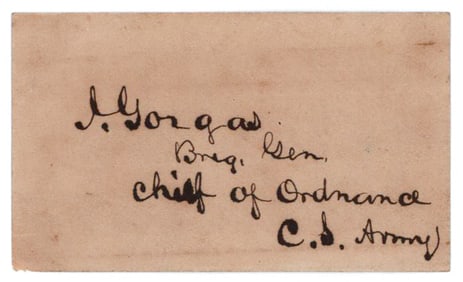 J. Gorgas.
Brig. Gen.
Chief of Ordnance
C.S. Army